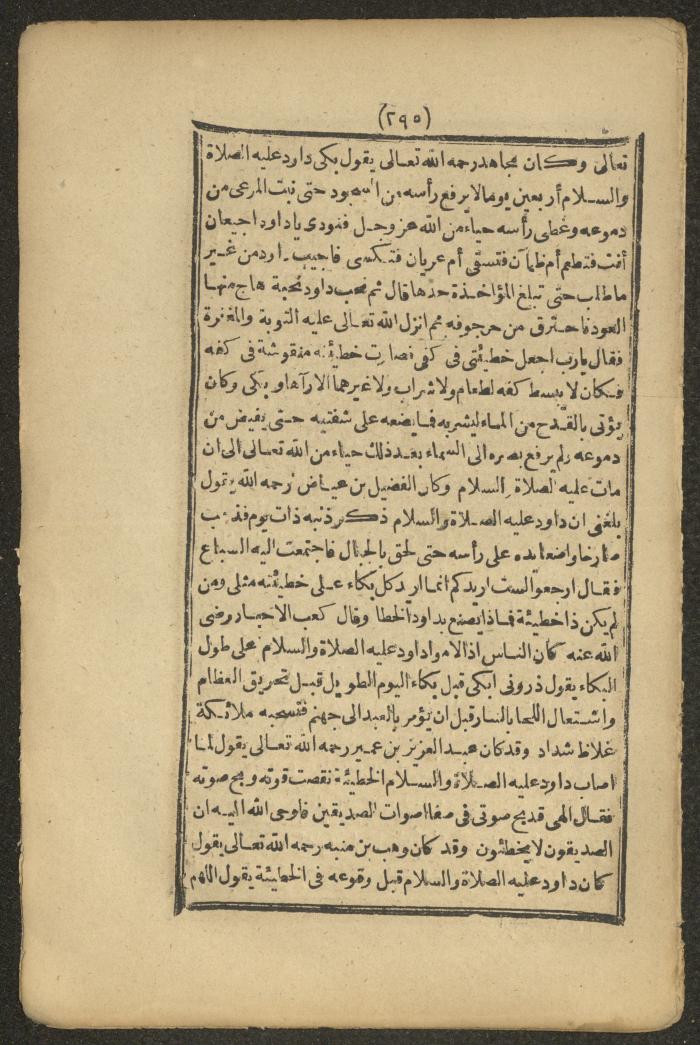 (٢٩٥)
تعالى وكان مجاهد رحمه الله تعالى يقول بكى داود عليه الصلاة
والسلام أربعين يوما لا يرفع رأسه من السجود حتى نبت المرعى من
دموعه وغطى رأسه حياء من الله عز وجل فنودى ياداود اجيعان
أنت فتطعم أم ظمآن فتسقى أم عريان فتكسى فاجيب داود من غير
ما طلب حتى تبلغ المؤاخذة حدها قال ثم نحب داود نحبة هاج منها
العود فاحترق من حرجوفه ثم انزل الله تعالى عليه التوبة والمغفرة
فقال يارب اجعل خطيئتى فى كفى فصارت خطيئته منقوشة فى كفه
فكان لا يبسط كفه لطعام ولا شراب ولا غيرهما الا رآها وبكى وكان
يؤتى بالقدح من الماء ليشربه فما يضعه على شفتيه حتى يفيض من
دموعه ولم يرفع بصره الى السماء بعد ذلك حياء من الله تعالى الى ان
مات عليه الصلاة والسلام وكان الفضيل بن عياض رحمه الله يقول
بلغنى ان داود عليه الصلاة والسلام ذكر ذنبه ذات يوم فذهب
صارخا واضعا يده على رأسه حتى لحق بالجبال فاجتمعت اليه السباع
فقال ارجعوا لست اريدكم انما اريد كل بكاء على خطيئته مثلى ومن
لم يكن ذا خطيئة فماذا يصنع بداود الخطا وقال كعب الاحبار رضى
الله عنه كان الناس اذا لاموا داود عليه الصلاة والسلام على طول
البكاء يقول ذرونى ابكى قبل بكاء اليوم الطويل قبل تحريق العظام
واشتعال اللحا بالنار قبل ان يؤمر بالعبد الى جهنم فتسحبه ملائكة
غلاظ شداد وقد كان عبد العزيز بن عمير رحمه الله تعالى يقول لما
اصاب داود عليه الصلاة والسلام الخطيئة نقصت قوته وبح صوته
فقال الهى قد بح صوتى فى صفا اصوات الصديقين فاوحى الله اليه ان
الصديقون لا يخطئون وقد كان وهب بن منبه رحمه الله تعالى يقول
كان داود عليه الصلاة والسلام قبل وقوعه فى الخطيئة يقول اللهم